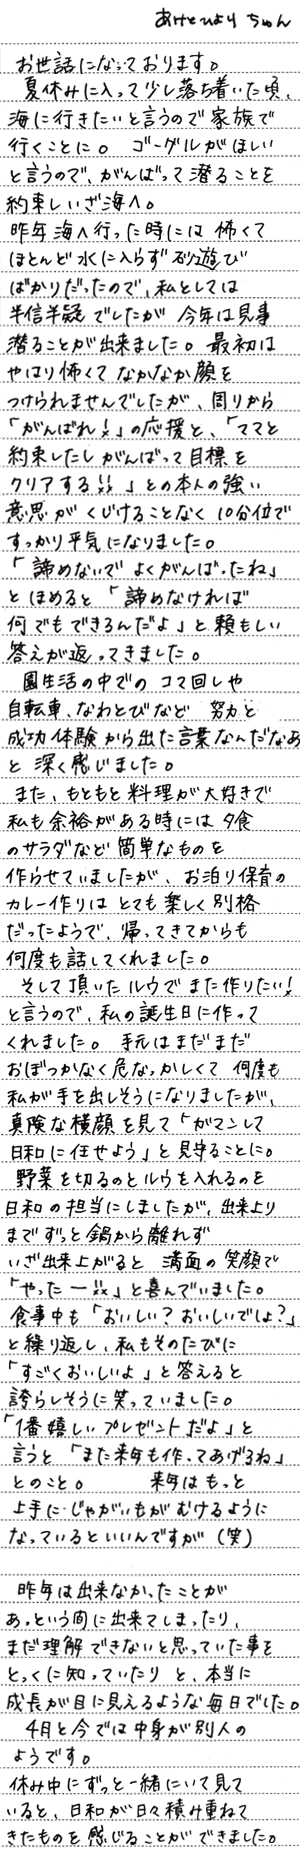 お世話になっております。
夏休みに入って少し落ち着いた頃、
海に行きたいと言うので家族で
行くことに。 ゴーグルがほしい
と言うので、がんばって潜ることを
約束しいざ海へ。
昨年海へ行った時には 怖くて
ほとんど水に入らず砂遊び
ばかりだったので、私としては
半信半疑でしたが 今年は見事
潜ることが出来ました。最初は
やはり怖くてなかなか顔を
つけられませんでしたが、周りから
「がんばれ!!」の応援と、「ママと
約束したしがんばって目標を
クリアする!!」との本人の強い
意思がくじけることなく10分位で
すっかり平気になりました。
「諦めないでよくがんばったね」
とほめると「諦めなければ
何でもできるんだよ」と頼もしい
答えが返ってきました。
園生活の中でのコマ回しや
自転車、なわとびなど 努力と
成功体験から出た言葉なんだなあ
と 深く感じました。
また、もともと料理が大好きで
私も余裕がある時には夕食
のサラダなど簡単なものを
作らせていましたが、お泊り保育の
カレー作りはとても楽しく別格
だったようで、帰ってきてからも
何度も話してくれました。
そして頂いたルウでまた作りたい!
と言うので、私の誕生日に作って
くれました。手元はまだまだ
おぼつかなく危なっかしくて 何度も
私が手を出しそうになりましたが、
真険な横顔を見て「ガマンして
日和に任せよう」と見守ることに。
野菜を切るのとルウを入れるのを
日和の担当にしましたが、出来上り
までずっと鍋から離れず
いざ出来上がると 満面の笑顔で
「やったー!!」と喜んでいました。
食事中も「おいしい?おいしいでしょ?」
と繰り返し、私もそのたびに
「すごくおいしいよ」と答えると
誇らしそうに笑っていました。
「1番嬉しいプレゼントだよ」と
言うと「また来年も作ってあげるね」
とのこと。 来年はもっと
上手にじゃがいもがむけるように
なっているといいんですが(笑)
昨年は出来なかったことが
あっという間に出来てしまったり、
まだ理解できないと思っていた事を
とっくに知っていたりと、本当に
成長が目に見えるような毎日でした。
4月と今では中身が別人の
ようです。
休み中にずっと一緒にいて見て
いると、日和が日々積み重ねて
きたものを感じることができました。